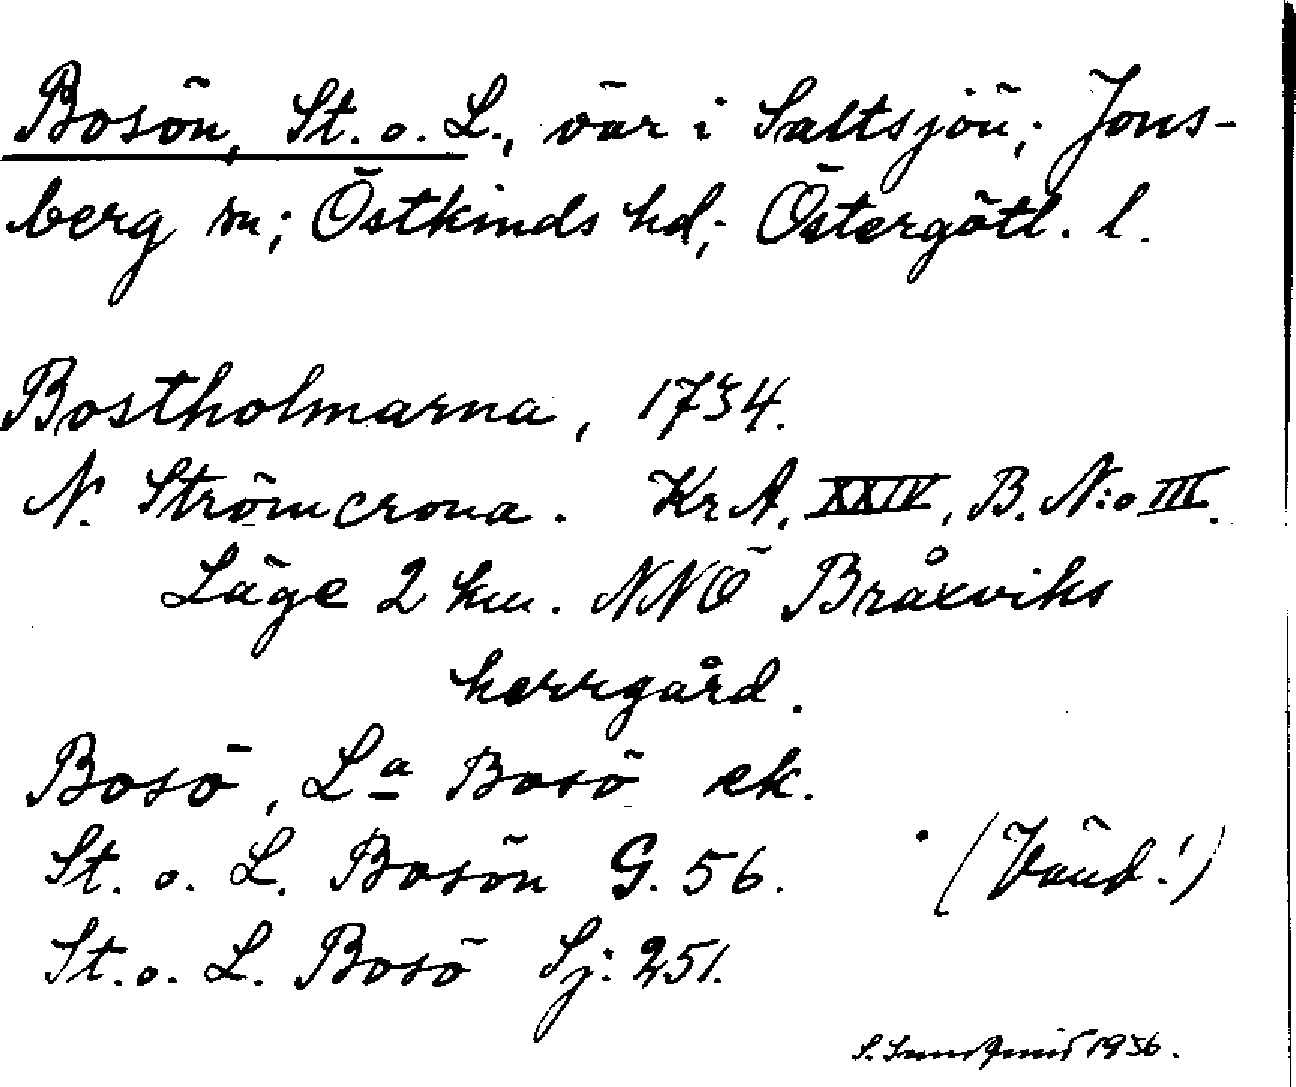 Bosön, St. o. L., öar i Saltsjön; Jons-
berg sn; Östkinds hd; Östergötl. l.
Bostholmarna, 1734.
N. Strömcrona. Kr A. XXIV, B. N:o III.
Läge 2 km. NNÖ Bråxviks
herrgård.
Bosö, La Bosö ek.
St. o. L. Bosön G. 56.
(Vänd!)
St. o. L. Bosö Sj: 251.
1936.